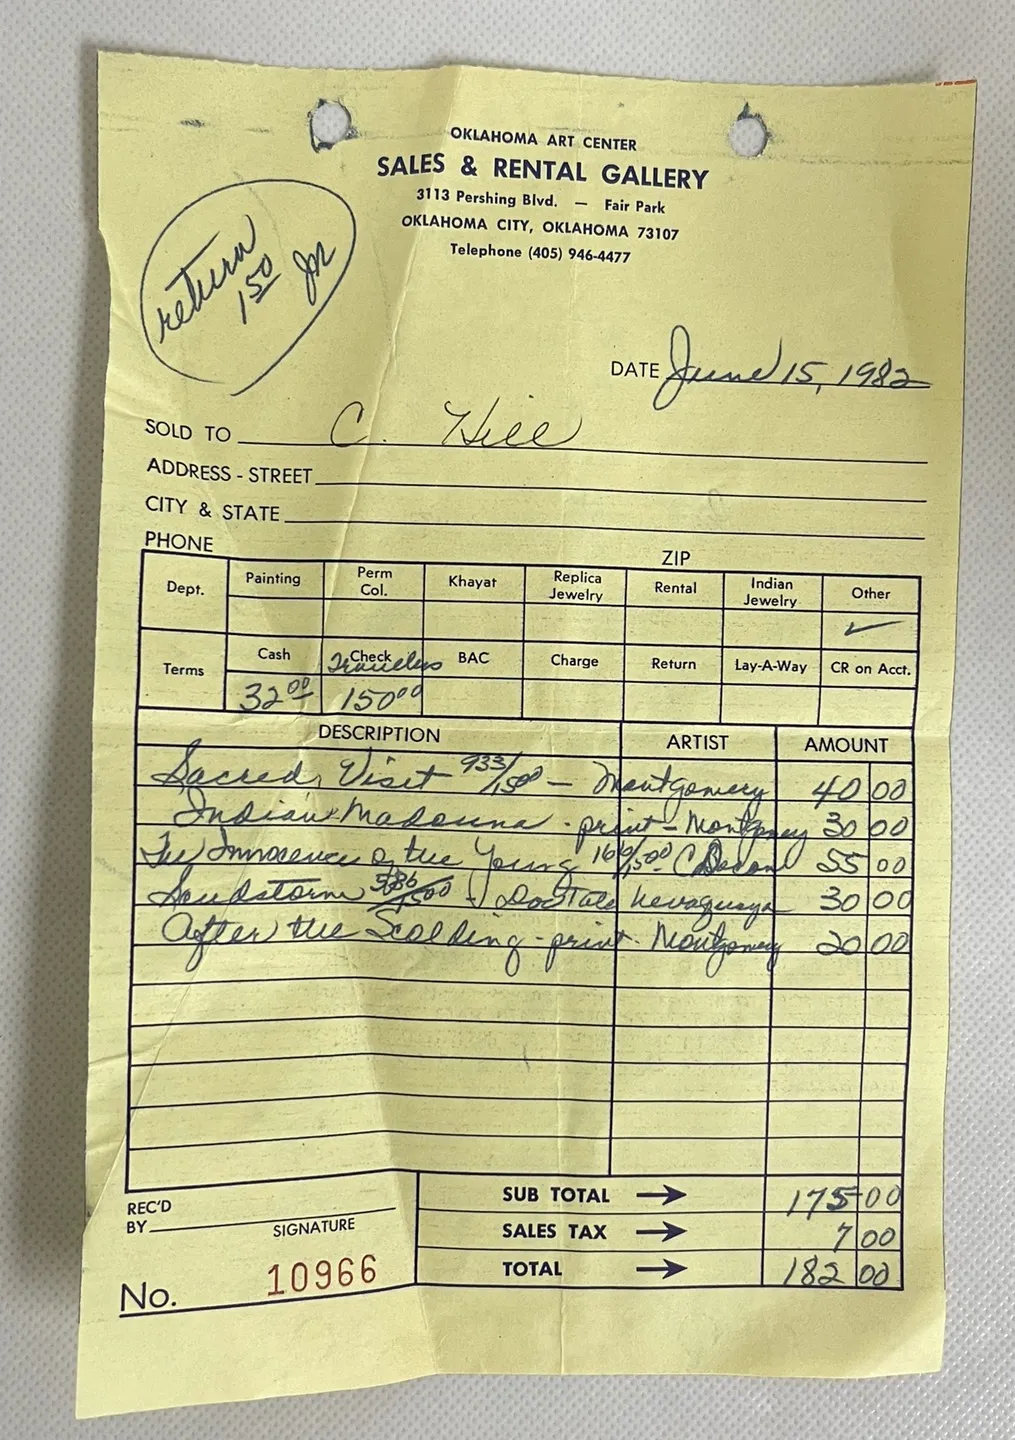 OKLAHOMA ART CENTER
SALES & RENTAL GALLERY
3113 Pershing Blvd. — Fair Park
OKLAHOMA CITY, OKLAHOMA 73107
Telephone (405) 946-4477
return
1.50
DATE June 15, 1982
SOLD TO C. Hill
ADDRESS - STREET
CITY & STATE
PHONE ZIP
Dept. Painting Perm Col. Khayat Replica Jewelry Rental Indian Jewelry Other
✓
Terms Cash Check Travelers BAC Charge Return Lay-A-Way CR on Acct.
32.00 150.00
DESCRIPTION ARTIST AMOUNT
Sacred Visit 933/1500 — Montgomery 40 00
Indian Madonna - print - Montgomery 30 00
The Innocence of the Young C 55 00
Sandstorm - Doc Tate Nevaquaya 30 00
After the Scolding - print - Montgomery 20 00
SUB TOTAL → 175 00
SALES TAX → 7 00
TOTAL → 182 00
REC'D
BY SIGNATURE
No. 10966